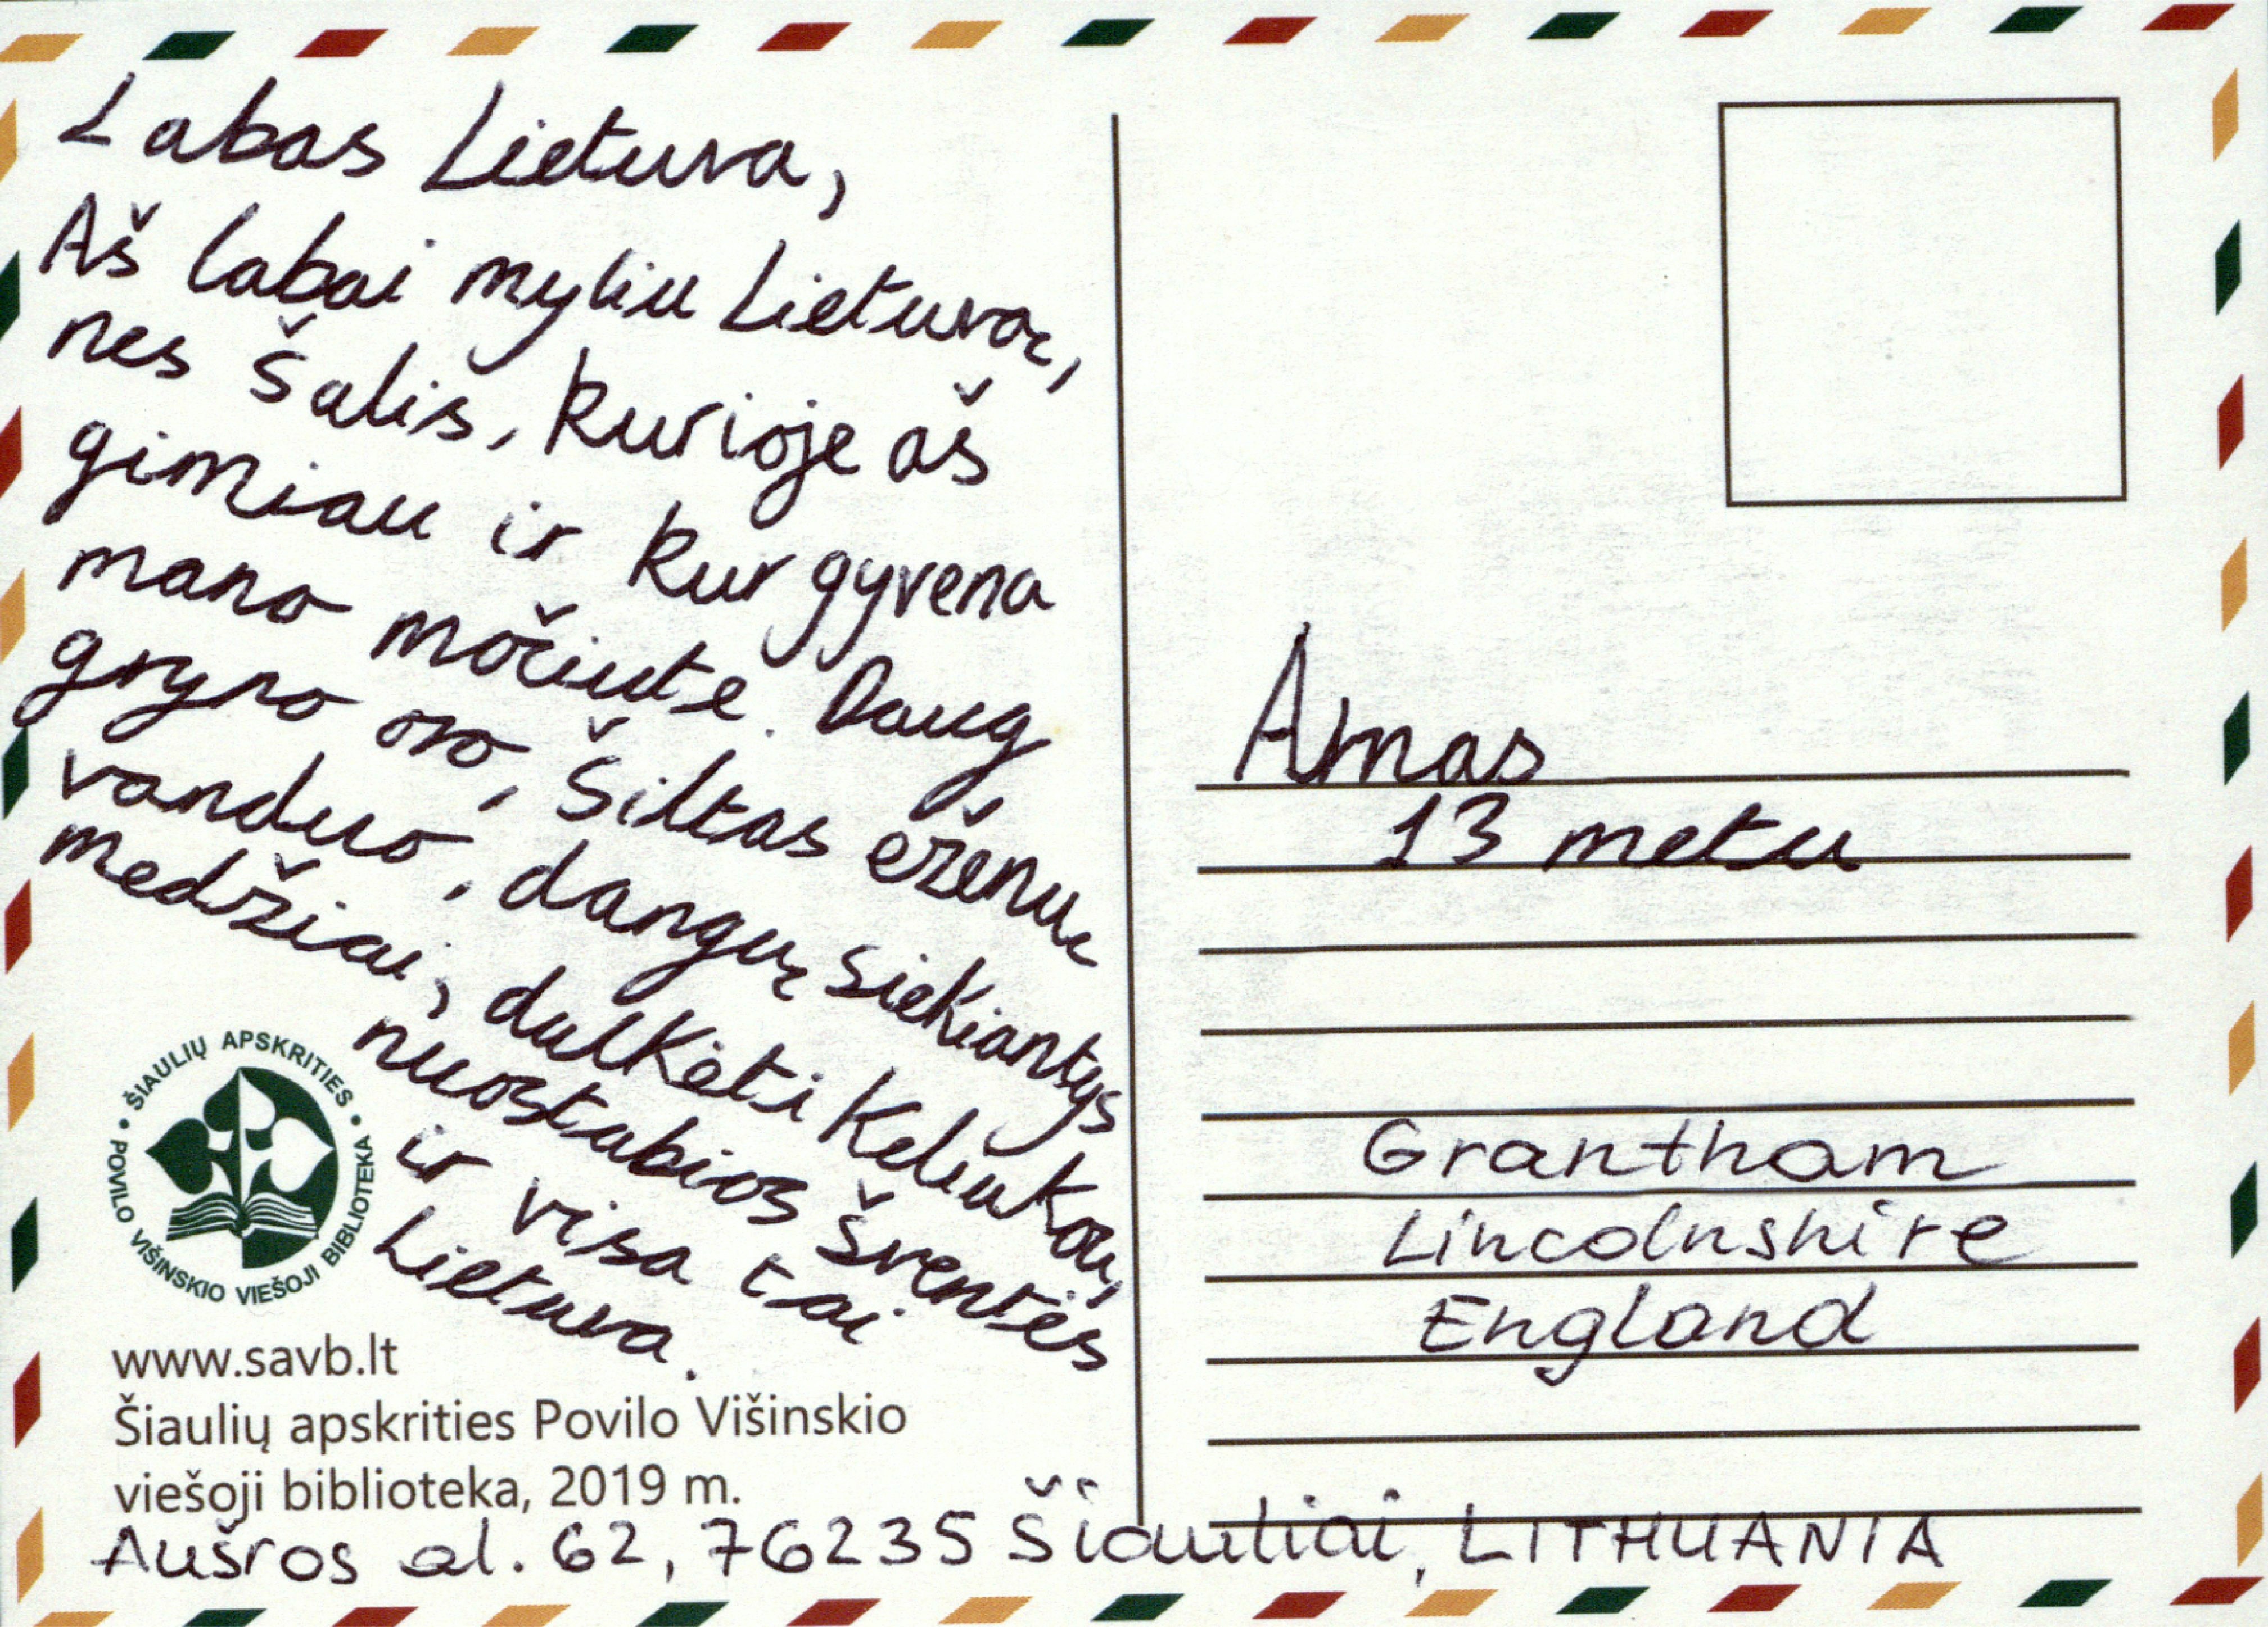 Labas Lietuva,
Aš labai myliu Lietuvą,
nes šalis, kurioje aš
gimiau ir kur gyvena
mano močiutė. Daug
gryno oro, šiltas ežerų
vanduo, dangų siekiantys
medžiai, dulkėti keliukai,
nuostabios šventės
ir visa tai
Lietuva.
• ŠIAULIŲ APSKRITIES •
POVILO VIŠINSKIO VIEŠOJI BIBLIOTEKA
www.savb.lt
Šiaulių apskrities Povilo Višinskio
viešoji biblioteka, 2019 m.
Aušros al. 62, 76235 Šiauliai, LITHUANIA
Arnas
13 metu
Grantham
Lincolnshire
England